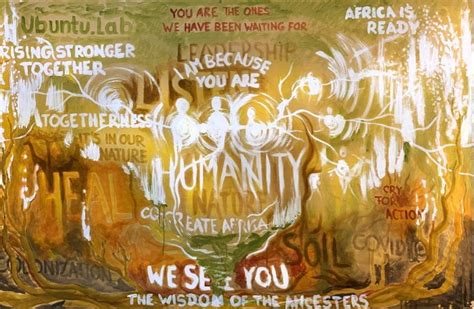 Ubuntu.Lab
YOU ARE THE ONES
WE HAVE BEEN WAITING FOR
AFRICA IS
READY
LEADERSHIP
RISING STRONGER
TOGETHER
I AM BECAUSE
YOU ARE
TOGETHERNESS
IT'S IN OUR
NATURE
HUMANITY
HEAL
NATURE
CRY
FOR
ACTION
CREATE AFRICA
SOIL
COVID
WE SEE YOU
THE WISDOM OF THE ANCESTERS